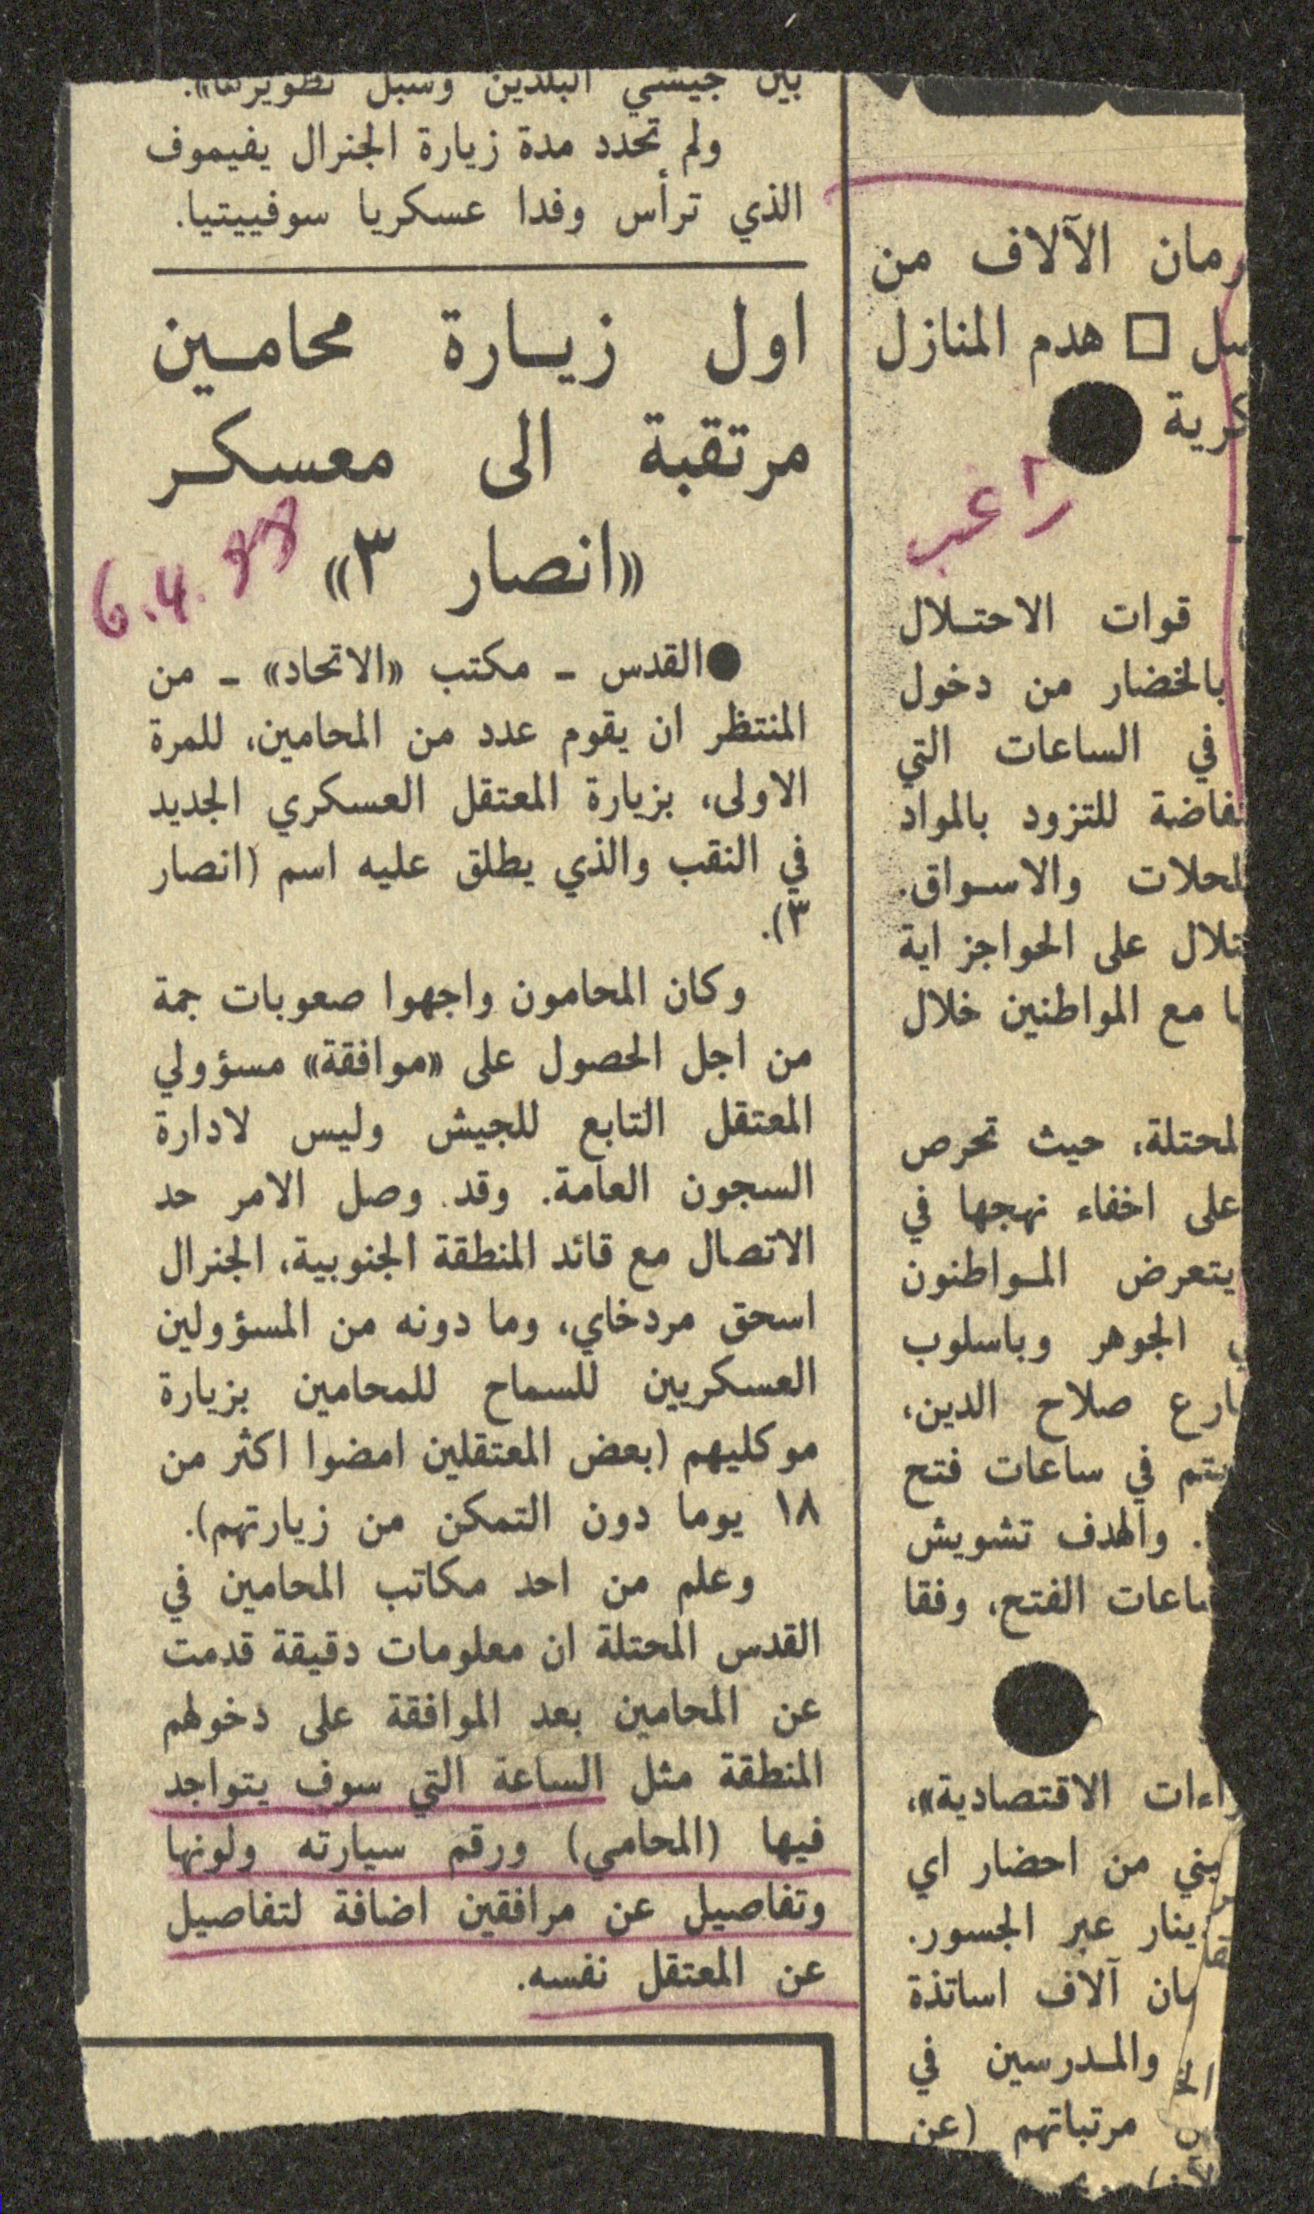 بين جيشي البلدين وسبل تطويرها».
ولم تحدد مدة زيارة الجنرال يفيموف
الذي ترأس وفدا عسكريا سوفييتيا.
اول زيــارة محامــين
مرتقبة الى معسكــر
«انصار ٣»
6.4.88
●القدس ـ مكتب «الاتحاد» ـ من
المنتظر ان يقوم عدد من المحامين، للمرة
الاولى، بزيارة المعتقل العسكري الجديد
في النقب والذي يطلق عليه اسم (انصار
٣).
وكان المحامون واجهوا صعوبات جمة
من اجل الحصول على «موافقة» مسؤولي
المعتقل التابع للجيش وليس لادارة
السجون العامة. وقد وصل الامر حد
الاتصال مع قائد المنطقة الجنوبية، الجنرال
اسحق مردخاي، وما دونه من المسؤولين
العسكريين للسماح للمحامين بزيارة
موكليهم (بعض المعتقلين امضوا اكثر من
١٨ يوما دون التمكن من زيارتهم).
وعلم من احد مكاتب المحامين في
القدس المحتلة ان معلومات دقيقة قدمت
عن المحامين بعد الموافقة على دخولهم
المنطقة مثل الساعة التي سوف يتواجد
فيها (المحامي) ورقم سيارته ولونها
وتفاصيل عن مرافقين اضافة لتفاصيل
عن المعتقل نفسه.
رمان الآلاف من
سل □ هدم المنازل
كرية ●
قوات الاحتـلال
بالخضار من دخول
في الساعات التي
تفاضة للتزود بالمواد
لمحلات والاسـواق.
تلال على الحواجز اية
ا مع المواطنين خلال
لمحتلة، حيث تحرص
على اخفاء نهجها في
يتعرض المـواطنون
ي الجوهر وباسلوب
ارع صلاح الدين،
يتم في ساعات فتح
. والهدف تشويش
ساعات الفتح، وفقا
●
راءات الاقتصادية»،
يني من احضار اي
دينار عبر الجسور.
مان آلاف اساتذة
والمـدرسين في
مرتباتهم (عن